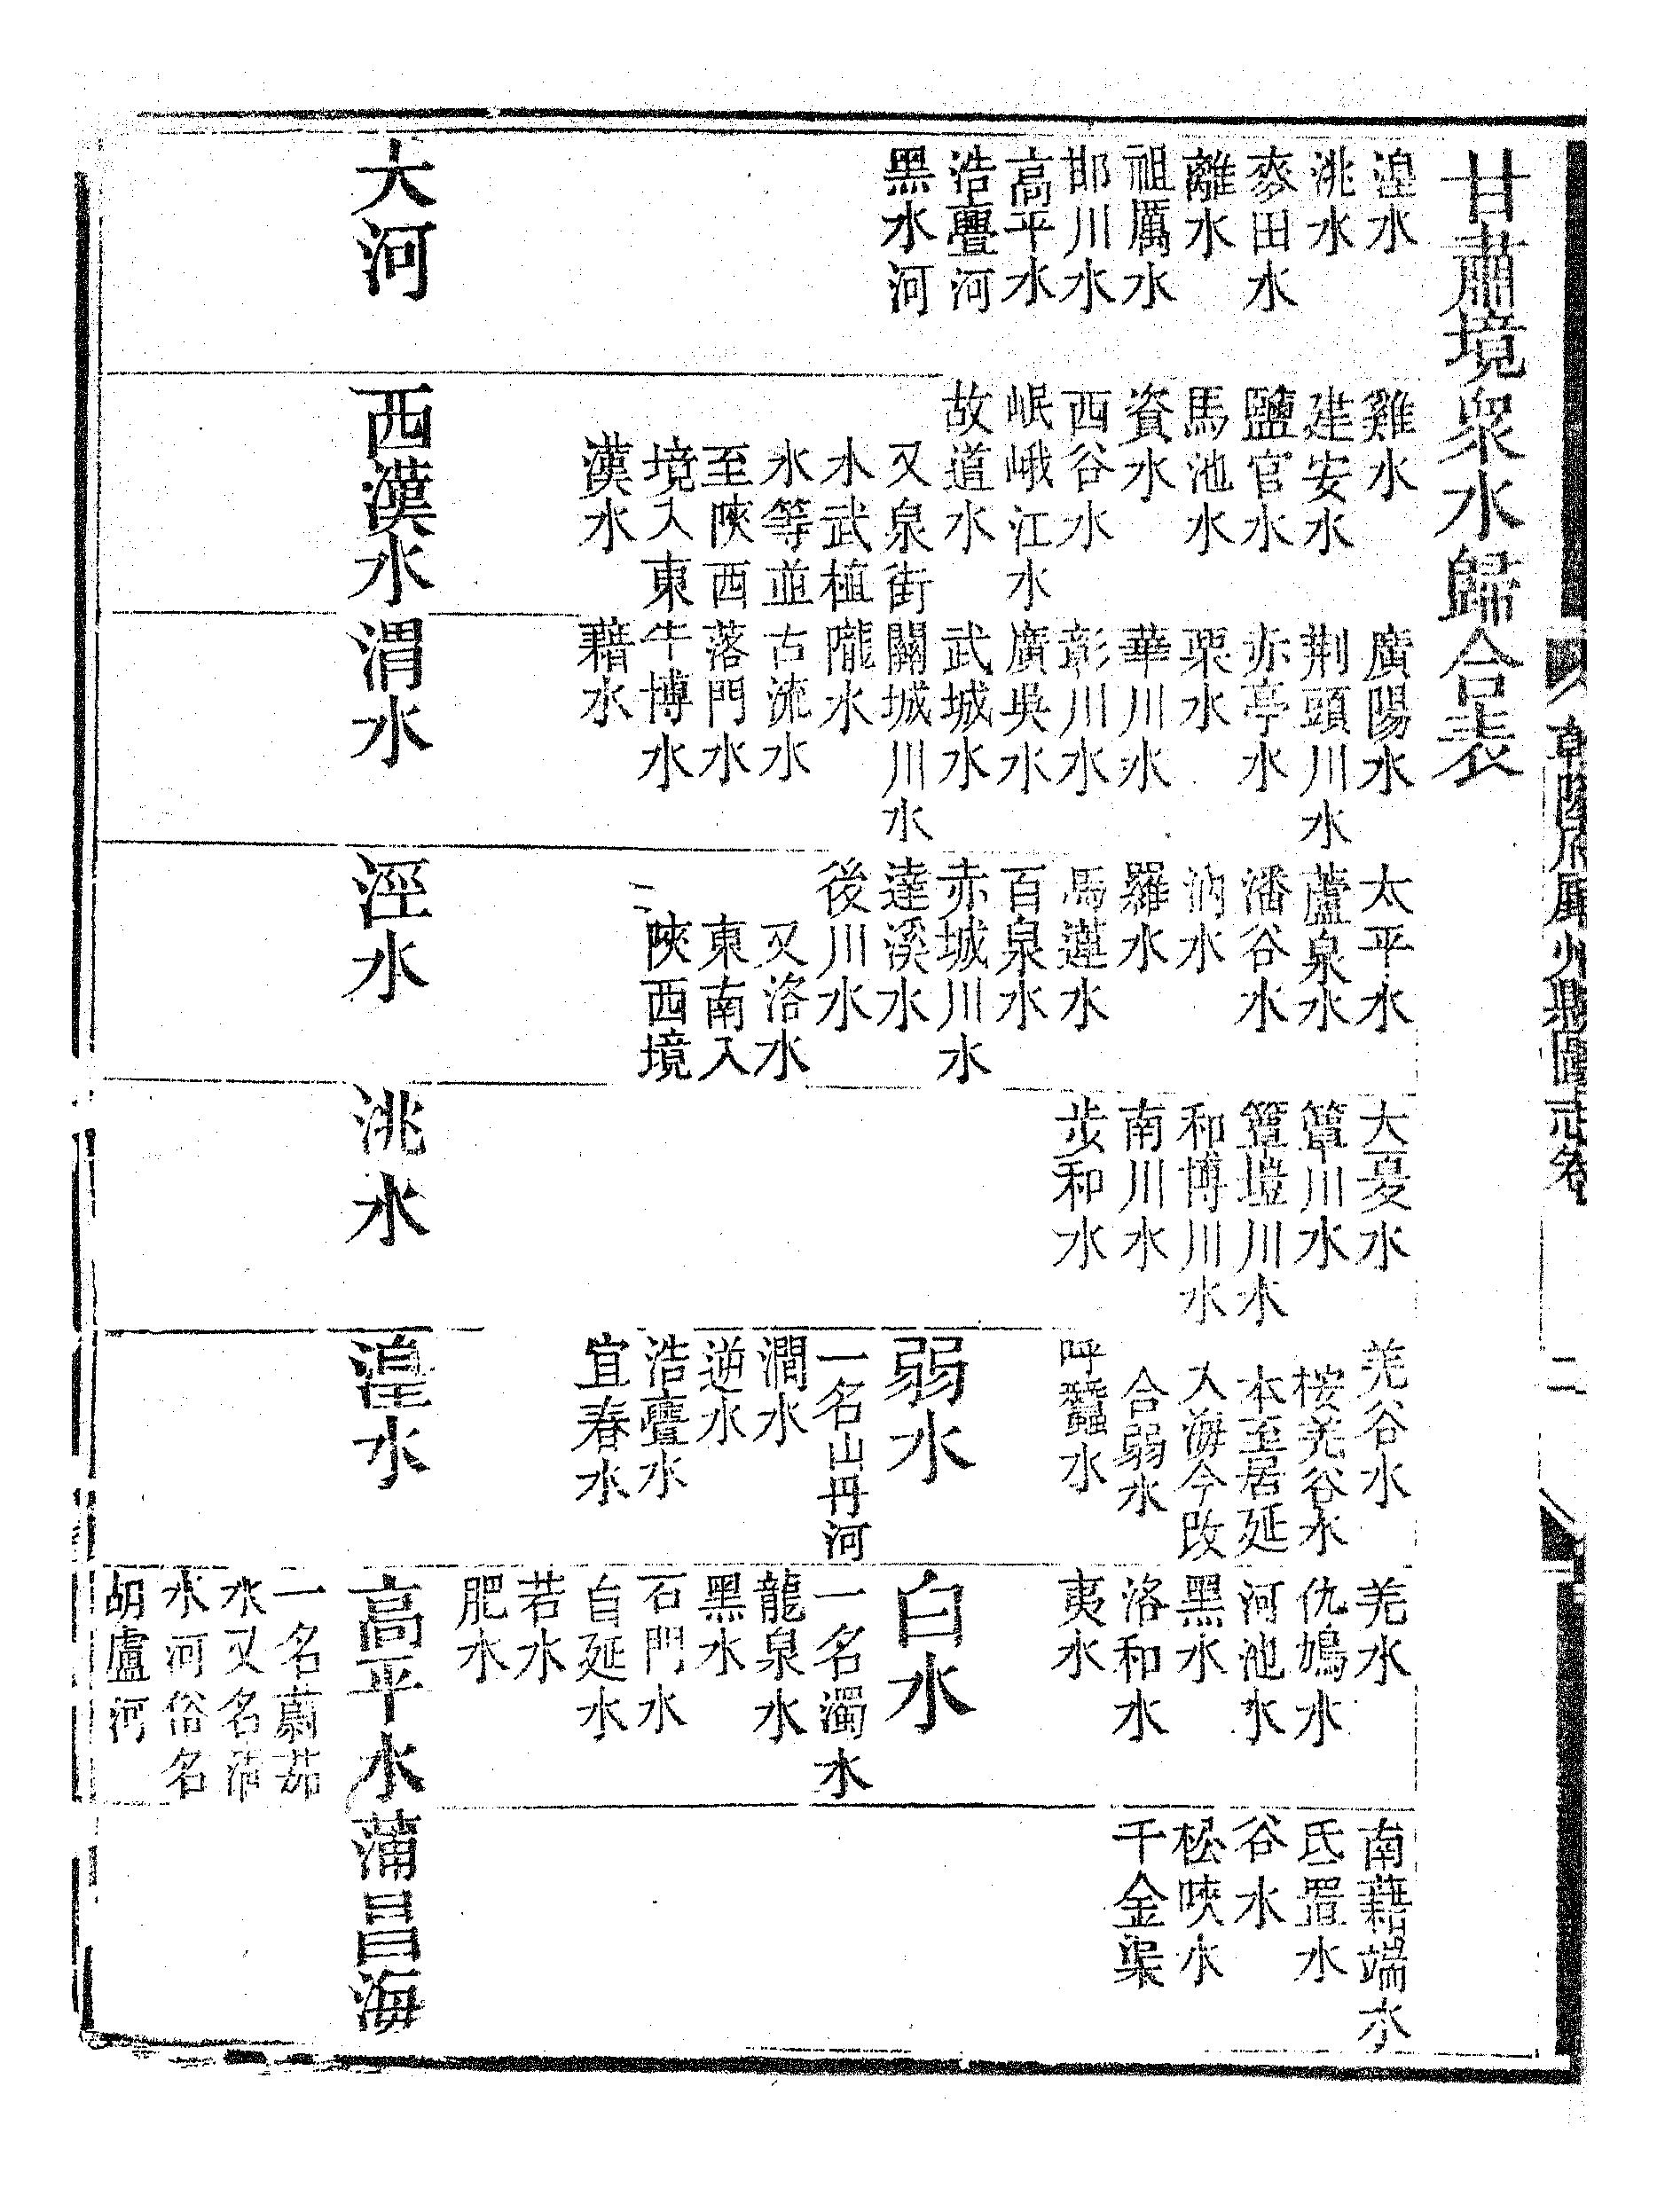 甘肅境衆水歸合表
湟水
洮水
麥田水
離水
祖厲水
邯川水
高平水
浩亹河
黑水河
大河
雞水
建安水
鹽官水
馬池水
資水
西谷水
岷峨江水
故道水
又泉街
水武植
水等並
至陝西
境入東
漢水
西漢水
廣陽水
荆頭川水
赤亭水
粟水
華川水
彰川水
廣吳水
武城水
關城川水
隴水
古流水
落門水
牛博水
藉水
渭水
太平水
蘆泉水
潘谷水
汭水
羅水
馬蓮水
百泉水
赤城川水
達溪水
後川水
又洛水
東南入
陝西境
涇水
大夏水
簟川水
簟塏川水
和博川水
南川水
步和水
洮水
羌谷水
桉羌谷水
本至居延
入海今改
合弱水
呼蠶水
弱水
一名山丹河
澗水
逆水
浩亹水
宜春水
湟水
羌水
仇鳩水
河池水
黑水
洛和水
夷水
白水
一名濁水
龍泉水
黑水
石門水
自延水
若水
肥水
高平水
一名蔚茹
水又名清
水河俗名
胡盧河
南藉端水
氐置水
谷水
松陜水
千金渠
蒲昌海
二